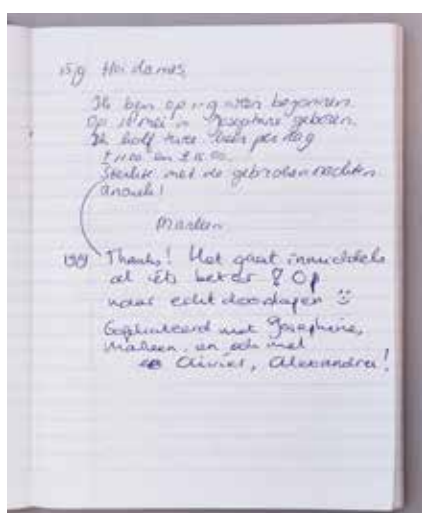 15/9 Hoi dames,
Ik ben op 11-9 weer begonnen.
Op 18 mei is Josephine geboren.
Ik kolf twee keer per dag
± 11.00 en ± 15.00.
Sterkte met de gebroken nachten
Anouk!
Marleen
15/9 Thanks! Het gaat inmiddels
al iets beter & Op
naar echt doorslapen
Gefeliciteerd met Josephine,
Marleen, en ook met
Olivier, Alexandra!